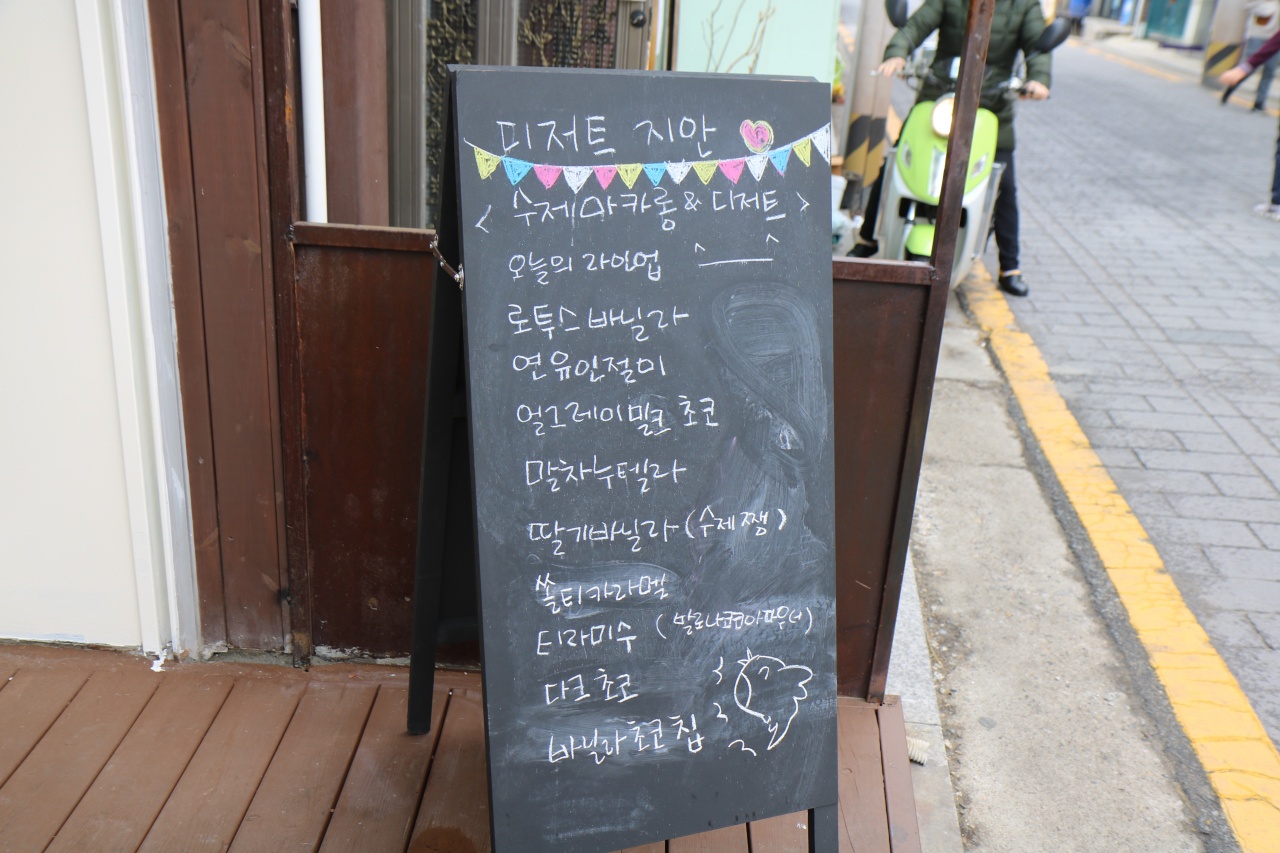 디저트 지안
< 수제마카롱 & 디저트 >
오늘의 라인업 ^__^
로투스바닐라
연유인절미
얼그레이밀크 초코
말차누텔라
딸기바닐라 (수제쨈)
쏠티카라멜
티라미수 (발로나코코아파우더)
다크 초코
바닐라 초코 칩